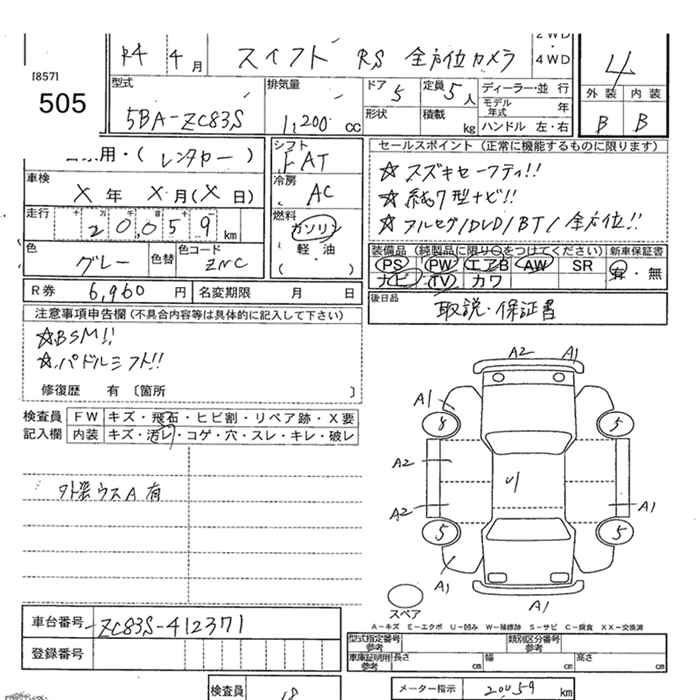 R4 4月 スイフト RS 全方位カメラ 2WD・4WD 4
[857]
505
型式 排気量 ドア 定員 ディーラー・並行 外装 内装
5BA-ZC83S 1,200cc 5 5人 モデル年式 年 B B
形状 積載 kg ハンドル 左・右
用・(レンタカー) シフト FAT セールスポイント(正常に機能するものに限ります)
車検 X年 X月(X日) 冷房 AC ☆スズキセーフティ!!
☆純正7型ナビ!!
走行 20,059km 燃料 ガソリン ☆フルセグ/DVD/BT/全方位!!
軽・油
色 グレー 色替 色コード ZNC 装備品(純製品に限り○をつけてください) 新車保証書
PS PW エアB AW SR 有・無
ナビ TV カワ
R券 6,960円 名変期限 月 日 後日品 取説・保証書
注意事項申告欄(不具合内容等は具体的に記入して下さい)
☆BSM!!
☆パドルシフト!!
修復歴 有〔箇所 〕
検査員 FW キズ・飛石・ヒビ割・リペア跡・X要
記入欄 内装 キズ・汚レ・コゲ・穴・スレ・キレ・破レ
外装ウスA有
A2 A1
A1
8 5
A2
A2 A1
5 5
A1
A1
スペア
A-キズ E-エクボ U-凹み W-補修跡 S-サビ C-腐食 XX-交換済
車台番号 ZC83S-412371
登録番号
型式指定番号 参考 類別区分番号 参考
車庫証明用 参考 長さ cm 幅 cm 高さ cm
検査員 18 メーター指示 20059 km